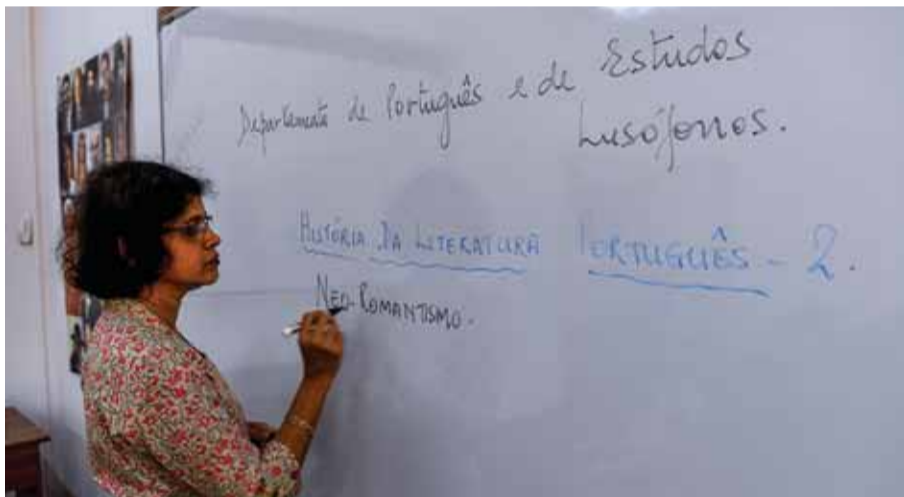 Departamento de Português e de Estudos
Lusófonos.
HISTÓRIA DA LITERATURA PORTUGUÊS - 2.
NEO-ROMANTISMO.